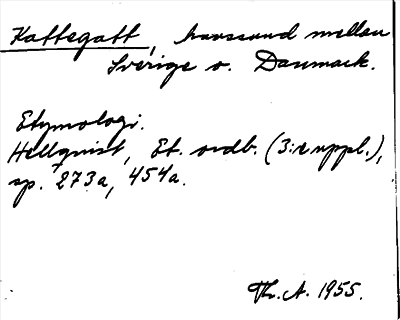 Kattegatt, havssund mellan
Sverige o. Danmark.
Etymologi.
Hellquist, Et. ordb. (3:e uppl.),
sp. 273a, 454a.
Th. A. 1955.